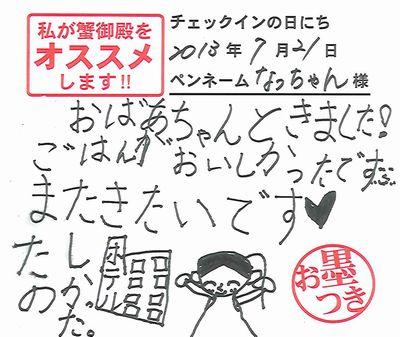 私が蟹御殿を
オススメ
します!!
チェックインの日にち
2013年7月21日
ペンネーム なっちゃん 様
おばあちゃんときました!
ごはんが おいしかったです
またきたいです♥
たのしかった。
ホテル
墨
おつき